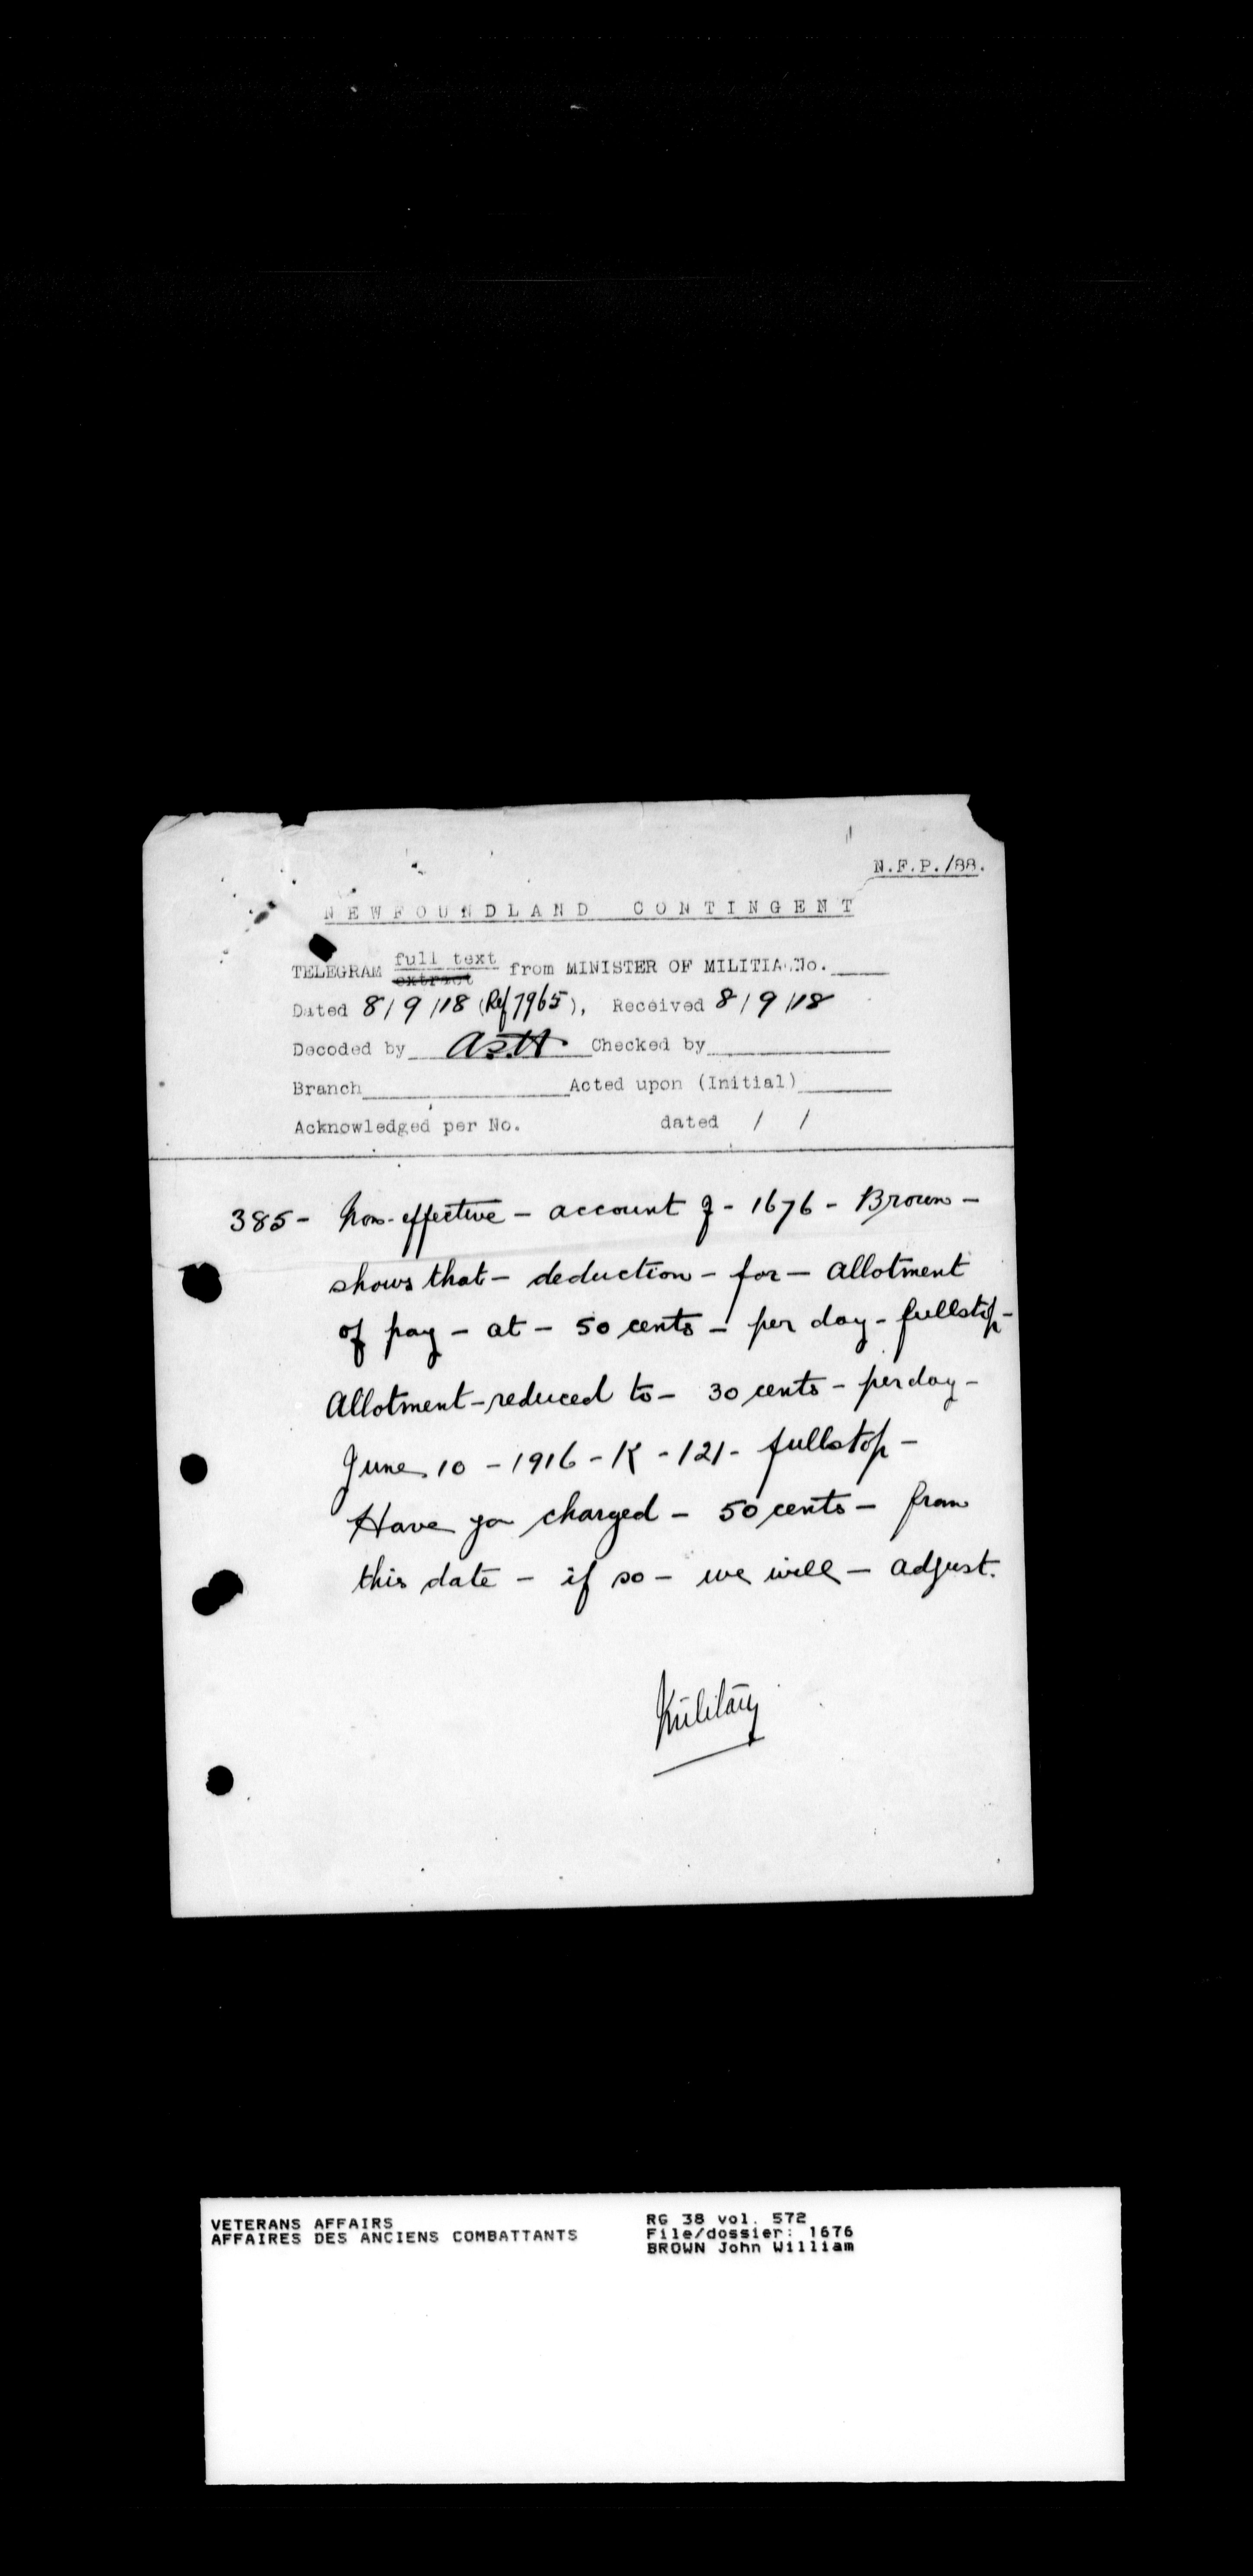 N.F.P./88.
NEWFOUNDLAND CONTINGENT
TELEGRAM full text extract from MINISTER OF MILITIA No.
Dated 8/9/18 (Ref 7965), Received 8/9/18
Decoded by Checked by
Branch Acted upon (Initial)
Acknowledged per No. dated / /
385- Non-effective - account of - 1676 - Brown -
shows that - deduction - for - allotment
of pay - at - 50 cents - per day - fullstop -
Allotment - reduced to - 30 cents - per day -
June 10 - 1916 - K - 121 - fullstop -
Have you charged - 50 cents - from
this date - if so - we will - adjust.
Military
VETERANS AFFAIRS
AFFAIRES DES ANCIENS COMBATTANTS
RG 38 vol. 572
File/dossier: 1676
BROWN John William